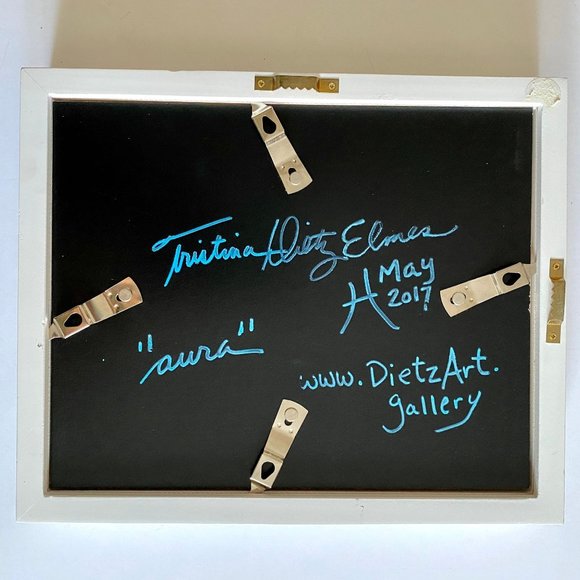 Tristina Dietz Elmes
H May
2017
"aura"
www.DietzArt.
gallery